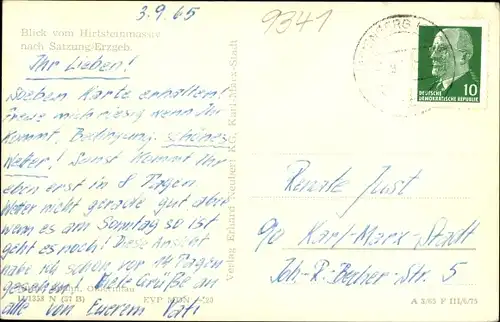 3.9.65
9341
Blick vom Hirtsteinmassiv
nach Satzung/Erzgeb.
Ihr Lieben!
Soeben Karte erhalten!
Freue mich riesig wenn Ihr
kommt. Bedingung: schönes
Wetter! Sonst kommt Ihr
eben erst in 8 Tagen
Wetter nicht gerade gut, aber
wenn es am Sonntag so ist
geht es noch! Diese Ansicht
habe ich schon vor 14 Tagen
gesehen! Viele Grüße an
alle von Eurem Vati
Verlag Erhard Neubert KG, Karl-Marx-Stadt
10
DEUTSCHE
DEMOKRATISCHE REPUBLIK
Renate Just
90 Karl-Marx-Stadt
Joh.-R.-Becher-Str. 5
A 3/65 F III/6/75